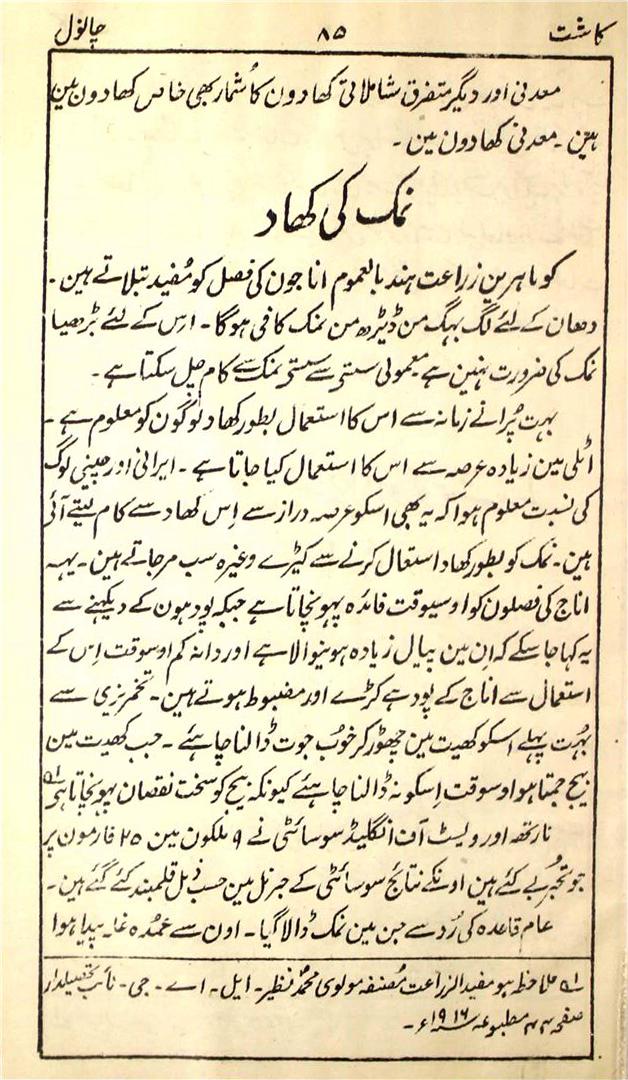 کاشت ۸۵ چانول
معدنی اور دیگر متفرق شاملاتی کھادون کا شمار بھی خاص کھادون مین
ہین۔ معدنی کھادون مین۔
نمک کی کھاد
کو ماہرین زراعت ہند بالعموم اناجون کی فصل کو مُفید تبلاتے ہین۔
دھان کے لئے لگ بھگ من ڈیڑھ من نمک کافی ہوگا۔ اِس کے لئے بڑھیا
نمک کی ضرورت نہین ہے معمولی سستی سے سستی نمک سے کام چل سکتا ہے۔
بہت پُرانے زمانہ سے اس کا استعمال بطور کھاد لوگون کو معلوم ہے۔
اٹلی مین زیادہ عرصہ سے اس کا استعمال کیا جاتا ہے۔ ایرانی اور چینی لوگ
کی نسبت معلوم ہوا کہ یہ بھی اسکو عرصہ دراز سے اِس کھاد سے کام لیتے آئی
ہین۔ نمک کو بطور کھاد استعال کرنے سے کیڑے وغیرہ سب مر جاتے ہین۔ یہہ
اناج کی فصلون کو اوسیوقت فائدہ پہونچاتا ہے جبکہ پودہون کے دیکھنے سے
یہ کہا جا سکے کہ اِن مین پیال زیادہ ہونیوالا ہے اور دانہ کم اوسوقت اِس کے
استعمال سے اناج کے پودہے کڑے اور مضبوط ہوتے ہین۔ تخمریزی سے
بہُت پہلے اسکو کھیت مین چھوڑ کر خوُب جوت ڈالنا چاہئے۔ جب کھیت مین
بیج جمتا ہو اوسوقت اِسکو نہ ڈالنا چاہئے کیونکہ بیج کو سخت نقصان پہونچاتا ہی ۱ہ
نارتھ اور ویسٹ آف انگلینڈ سوسائٹی نے ۹ ملکون مین ۲۵ فارمون پر
جو تجربے کئے ہین اونکے نتائج سوسائٹی کے جرنل مین حسب ذیل قلمبند کئے گئے ہین۔
عام قاعدہ کی رُو سے جن مین نمک ڈالا گیا۔ اون سے عمُدہ غلہ پیدا ہوا
۱ہ ملاحظہ ہو مفید الزراعت مُصنفہ مولوی محمدؐ نظیر۔ ایل۔ اے۔ جی۔ نائب تحصیلدار
صفحہ ۴۴ مطبوعہ ۱۹۱۶ء۔